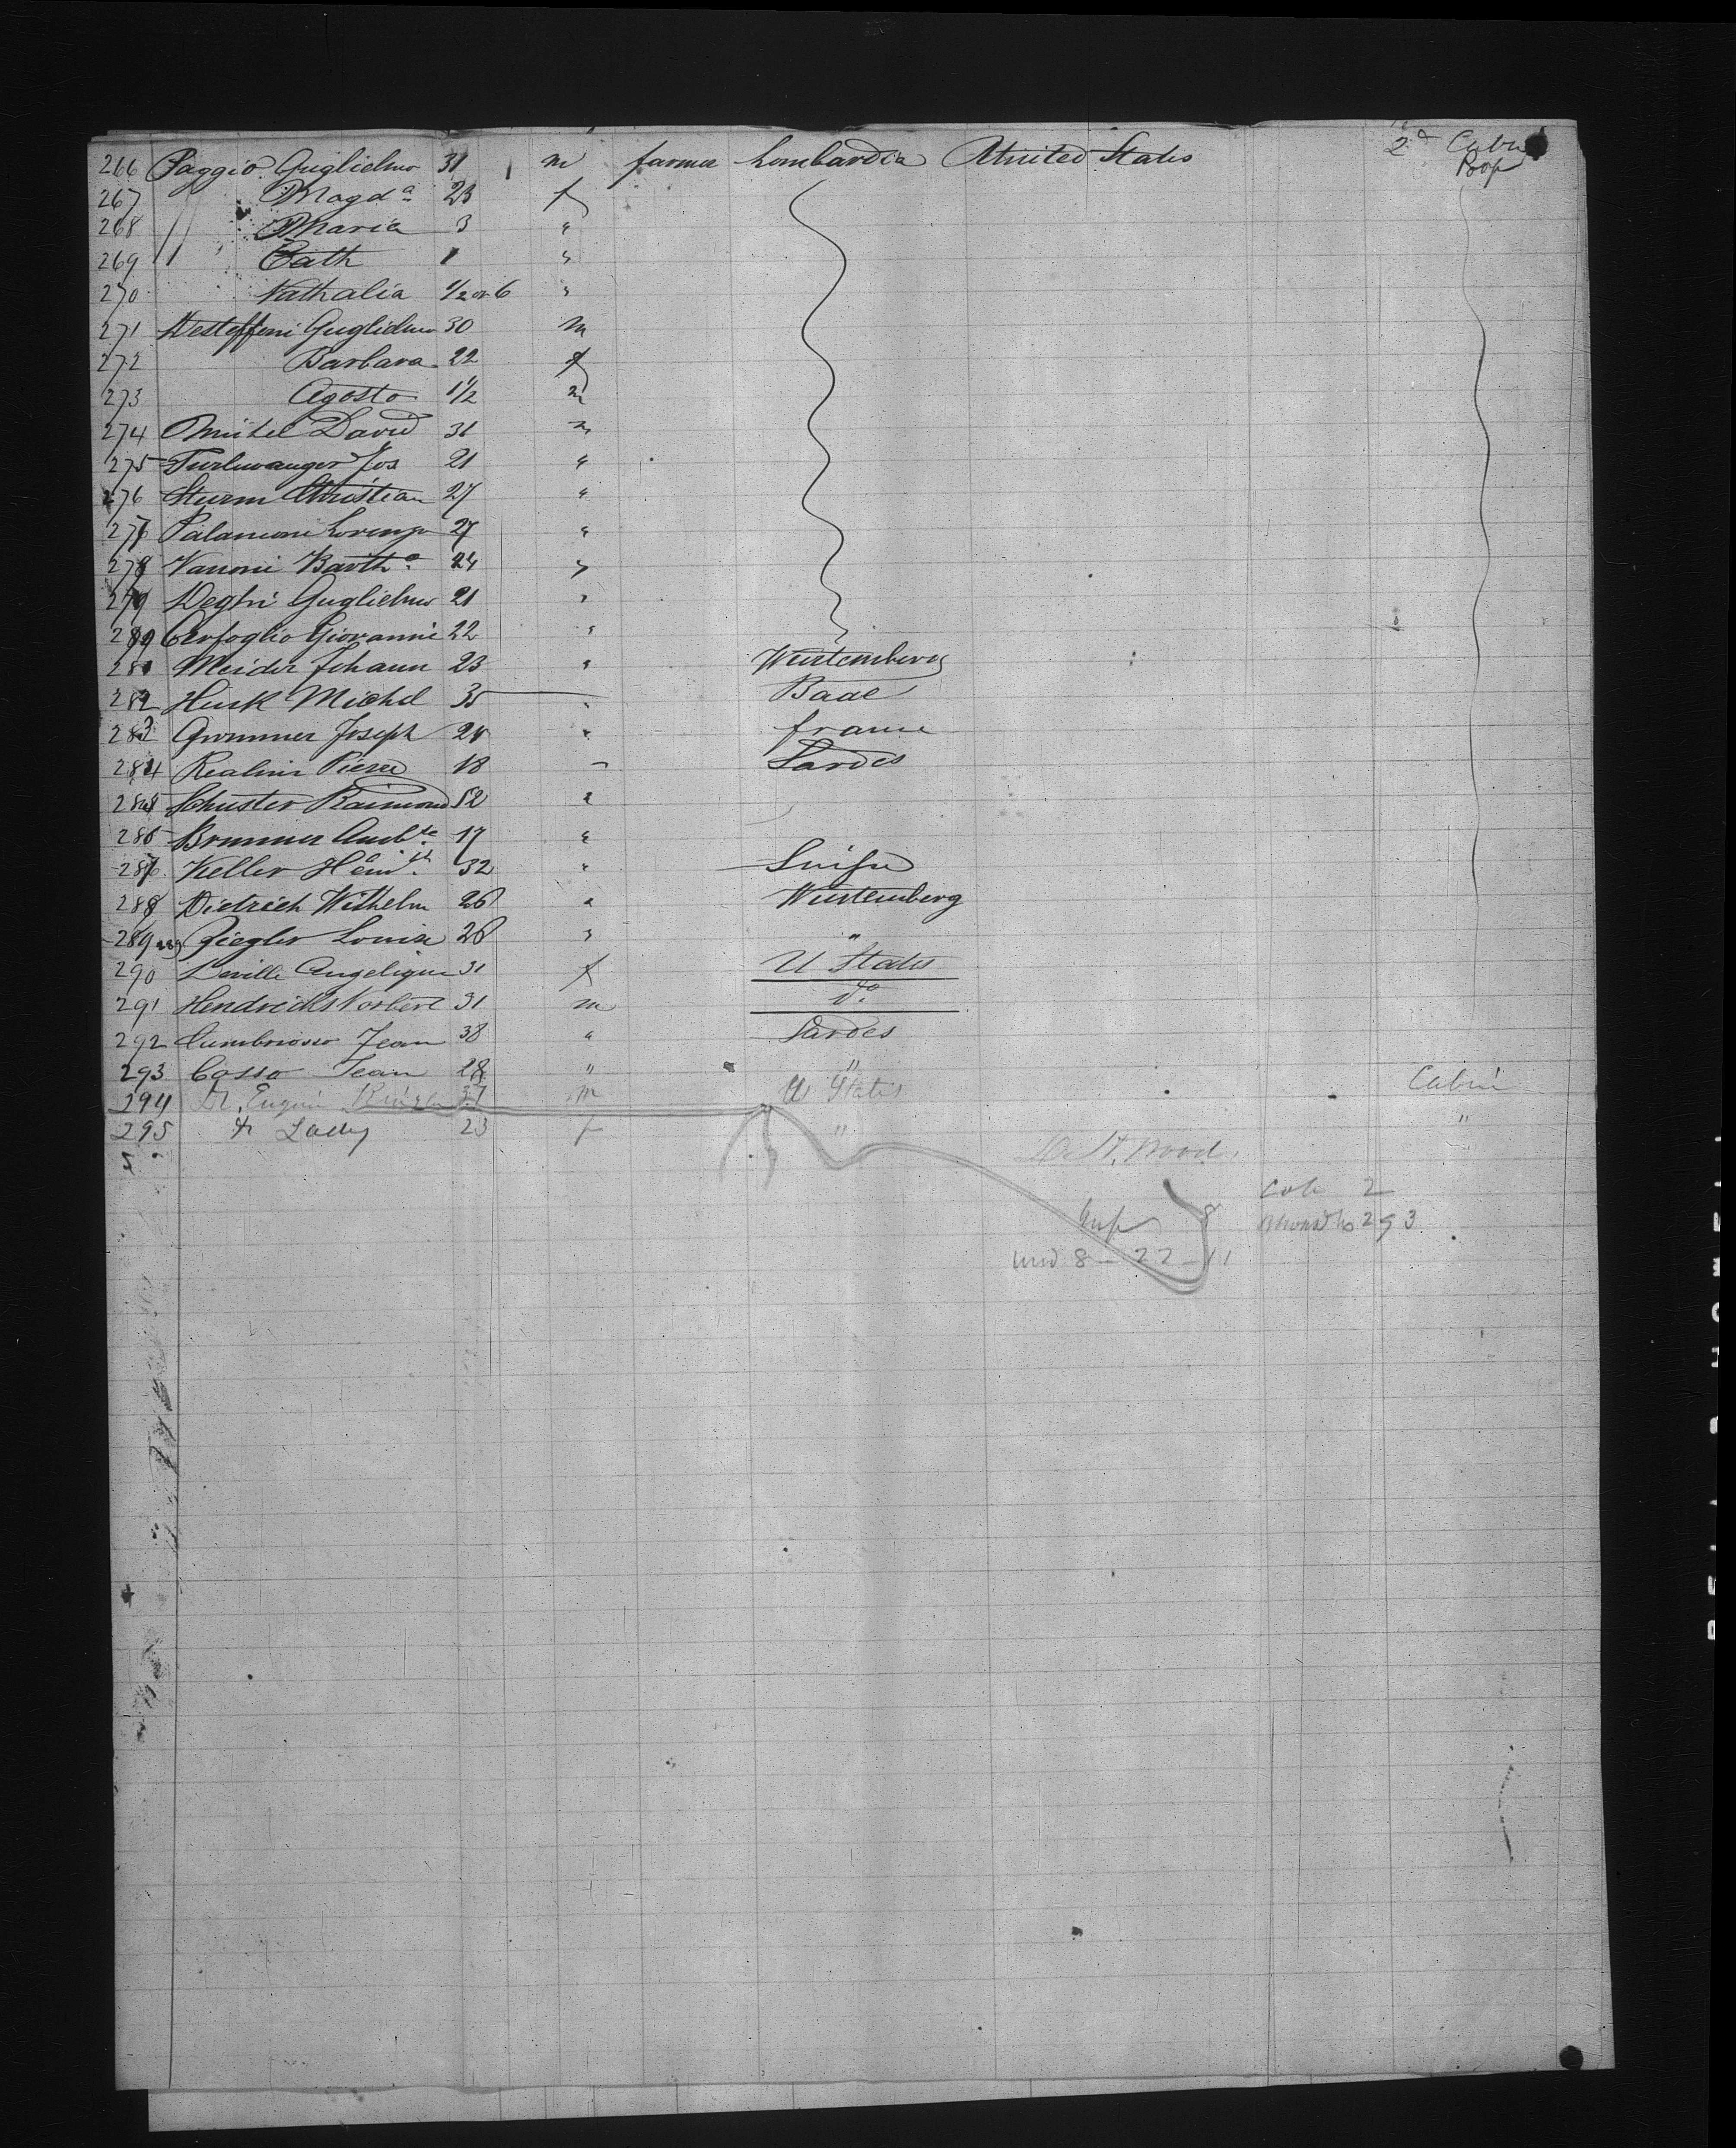 266 Paggio Guglielmo 31 m farmer Lombardia United States 2d Cabin
267 " Magda 23 f Pop
268 " Maria 3 "
269 " Cath 1 "
270 Nathalia 1/2 or 6 "
271 Desteffani Guglielmo 30 m
272 Barbara 22 f
273 Agosto 1 1/2 m
274 Michel David 31 m
275 Jos 21 "
276 Sturm Christian 27 "
277 Lorenzo 27 "
278 Vanoni Barth.o 24 "
279 Deghi Guglielmo 21 "
280 Cerfoglio Giovanni 22 "
281 Meider Johann 23 " Wurtemberg
282 Husk Michel 35 " Bade
283 Grimmer Joseph 24 " france
284 Realini Pierre 18 " Sardes
285 Schuster Raimond 52 "
286 Brunner 17 "
287 Keller Heinr. 32 " Suisse
288 Dietrich Wilhelm 26 " Wurtemberg
289 Ziegler Louise 26 " "
290 Deville Angelique 31 f U States
291 Hendricks Norbert 31 m do
292 Jean 38 " Sardes
293 Casso Jean 28 " "
294 Dr. Eugene 37 m U States Cabin
295 & Lady 23 f " "
Wood
2
8 293
und 8 - 22 - 11